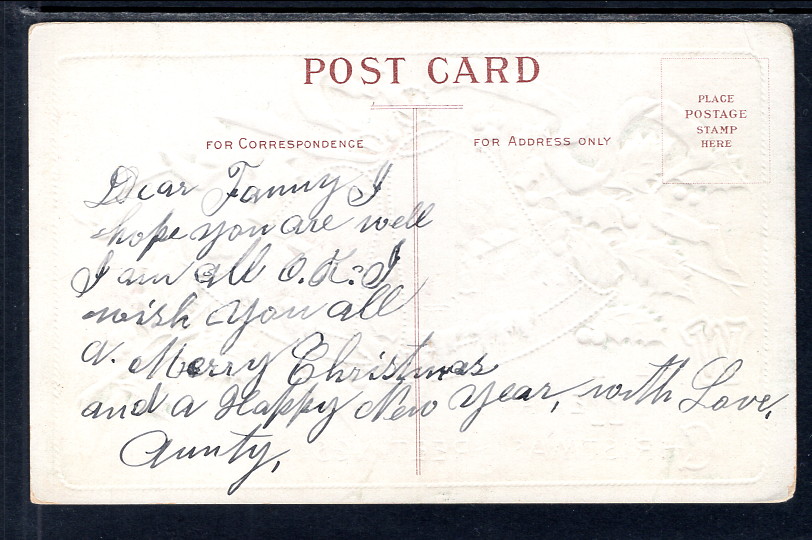 POST CARD
PLACE
POSTAGE
STAMP
HERE
FOR CORRESPONDENCE
FOR ADDRESS ONLY
Dear Fanny I
hope you are well
I am all O.K. I
wish you all
a. Merry Christmas
and a Happy New Year, with Love,
Aunty,